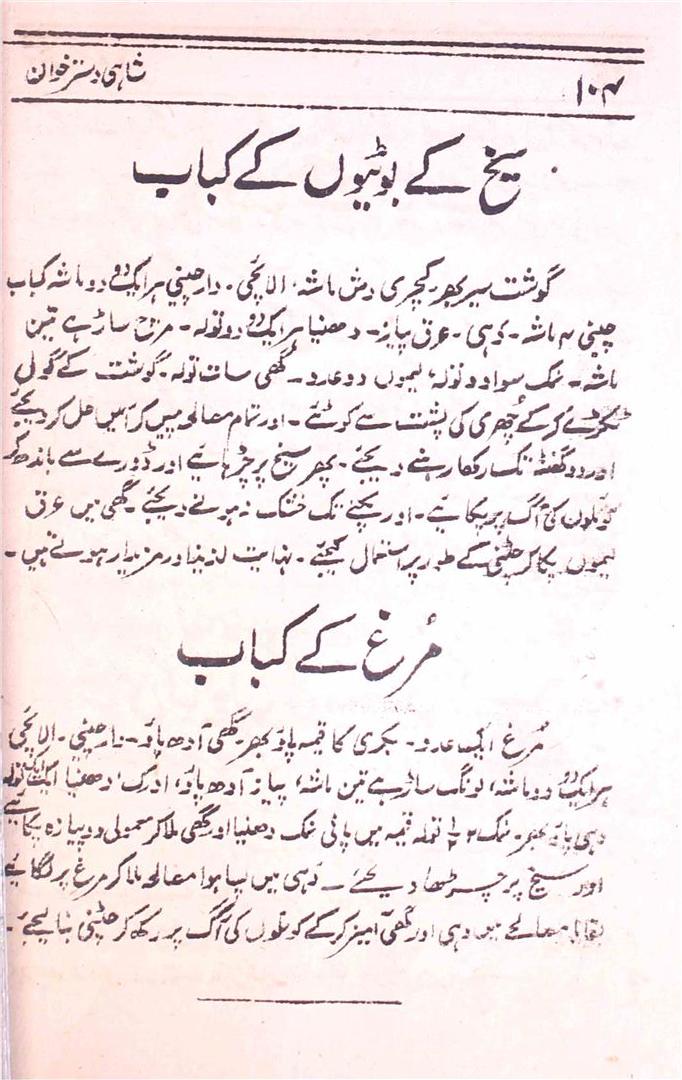 ۱۰۴
شاہی دسترخوان
سیخ کے بوٹیوں کے کباب
گوشت سیر بھر۔ کچری دس ماشہ، الائچی۔ دارچینی ہر ایک دو دو ماشہ کباب
چینی ۴ ماشہ۔ دہی۔ عرق پیاز۔ دھنیا ہر ایک دو دو تولہ۔ مرچ ساڑھے تین
ماشہ۔ نمک سوا دو تولہ، لیموں دو عدد۔ گھی سات تولہ۔ گوشت کے گول
ٹکڑے کرکے چھری کی پشت سے کوٹئے۔ اور تمام مصالحہ پیس کر اس میں حل کر دیجئے
اور دو گھنٹہ تک رکھا رہنے دیجئے۔ پھر سیخ پر چڑہائیے اور ڈورے سے باندھ کر
کوئلوں کی آگ پر پکائیے۔ اور پکنے تک خشک نہ ہونے دیجئے۔ گھی میں عرق
لیموں پکا کر چٹنی کے طور پر استعمال کیجئے۔ نہایت لذیذ اور مزیدار ہوتے ہیں۔
مُرغ کے کباب
مُرغ ایک عدد۔ بکری کا قیمہ پاؤ بھر۔ گھی آدھ پاؤ۔ دارچینی۔ الائچی
ہر ایک دو دو ماشہ، لونگ ساڑھے تین ماشہ، پیاز آدھ پاؤ، ادرک، دھنیا ایک ایک تولہ
دہی پاؤ بھر۔ نمک ۲½ تولہ قیمہ میں پانی نمک دھنیا اور گھی ملا کر معمولی دوپیازہ پکائیے
اور سیخ پر چڑھا دیجئے۔ دہی میں پسا ہوا مصالحہ ملا کر مرغ پر لگائیے
بقایا مصالحے میں دہی اور گھی آمیز کرکے کوئلوں کی آگ پر رکھ کر چٹنی بنا لیجئے۔